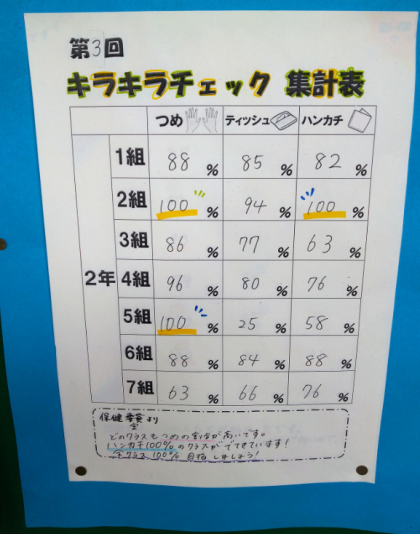 第3回
キラキラチェック 集計表
つめ ティッシュ ハンカチ
2年
1組 88% 85% 82%
2組 100% 94% 100%
3組 86% 77% 63%
4組 96% 80% 76%
5組 100% 25% 58%
6組 88% 84% 88%
7組 63% 66% 76%
保健委員より
どのクラスもつめの割合が高いです。
ハンカチ100%のクラスがでてきています!
全クラス100%目指しましょう!